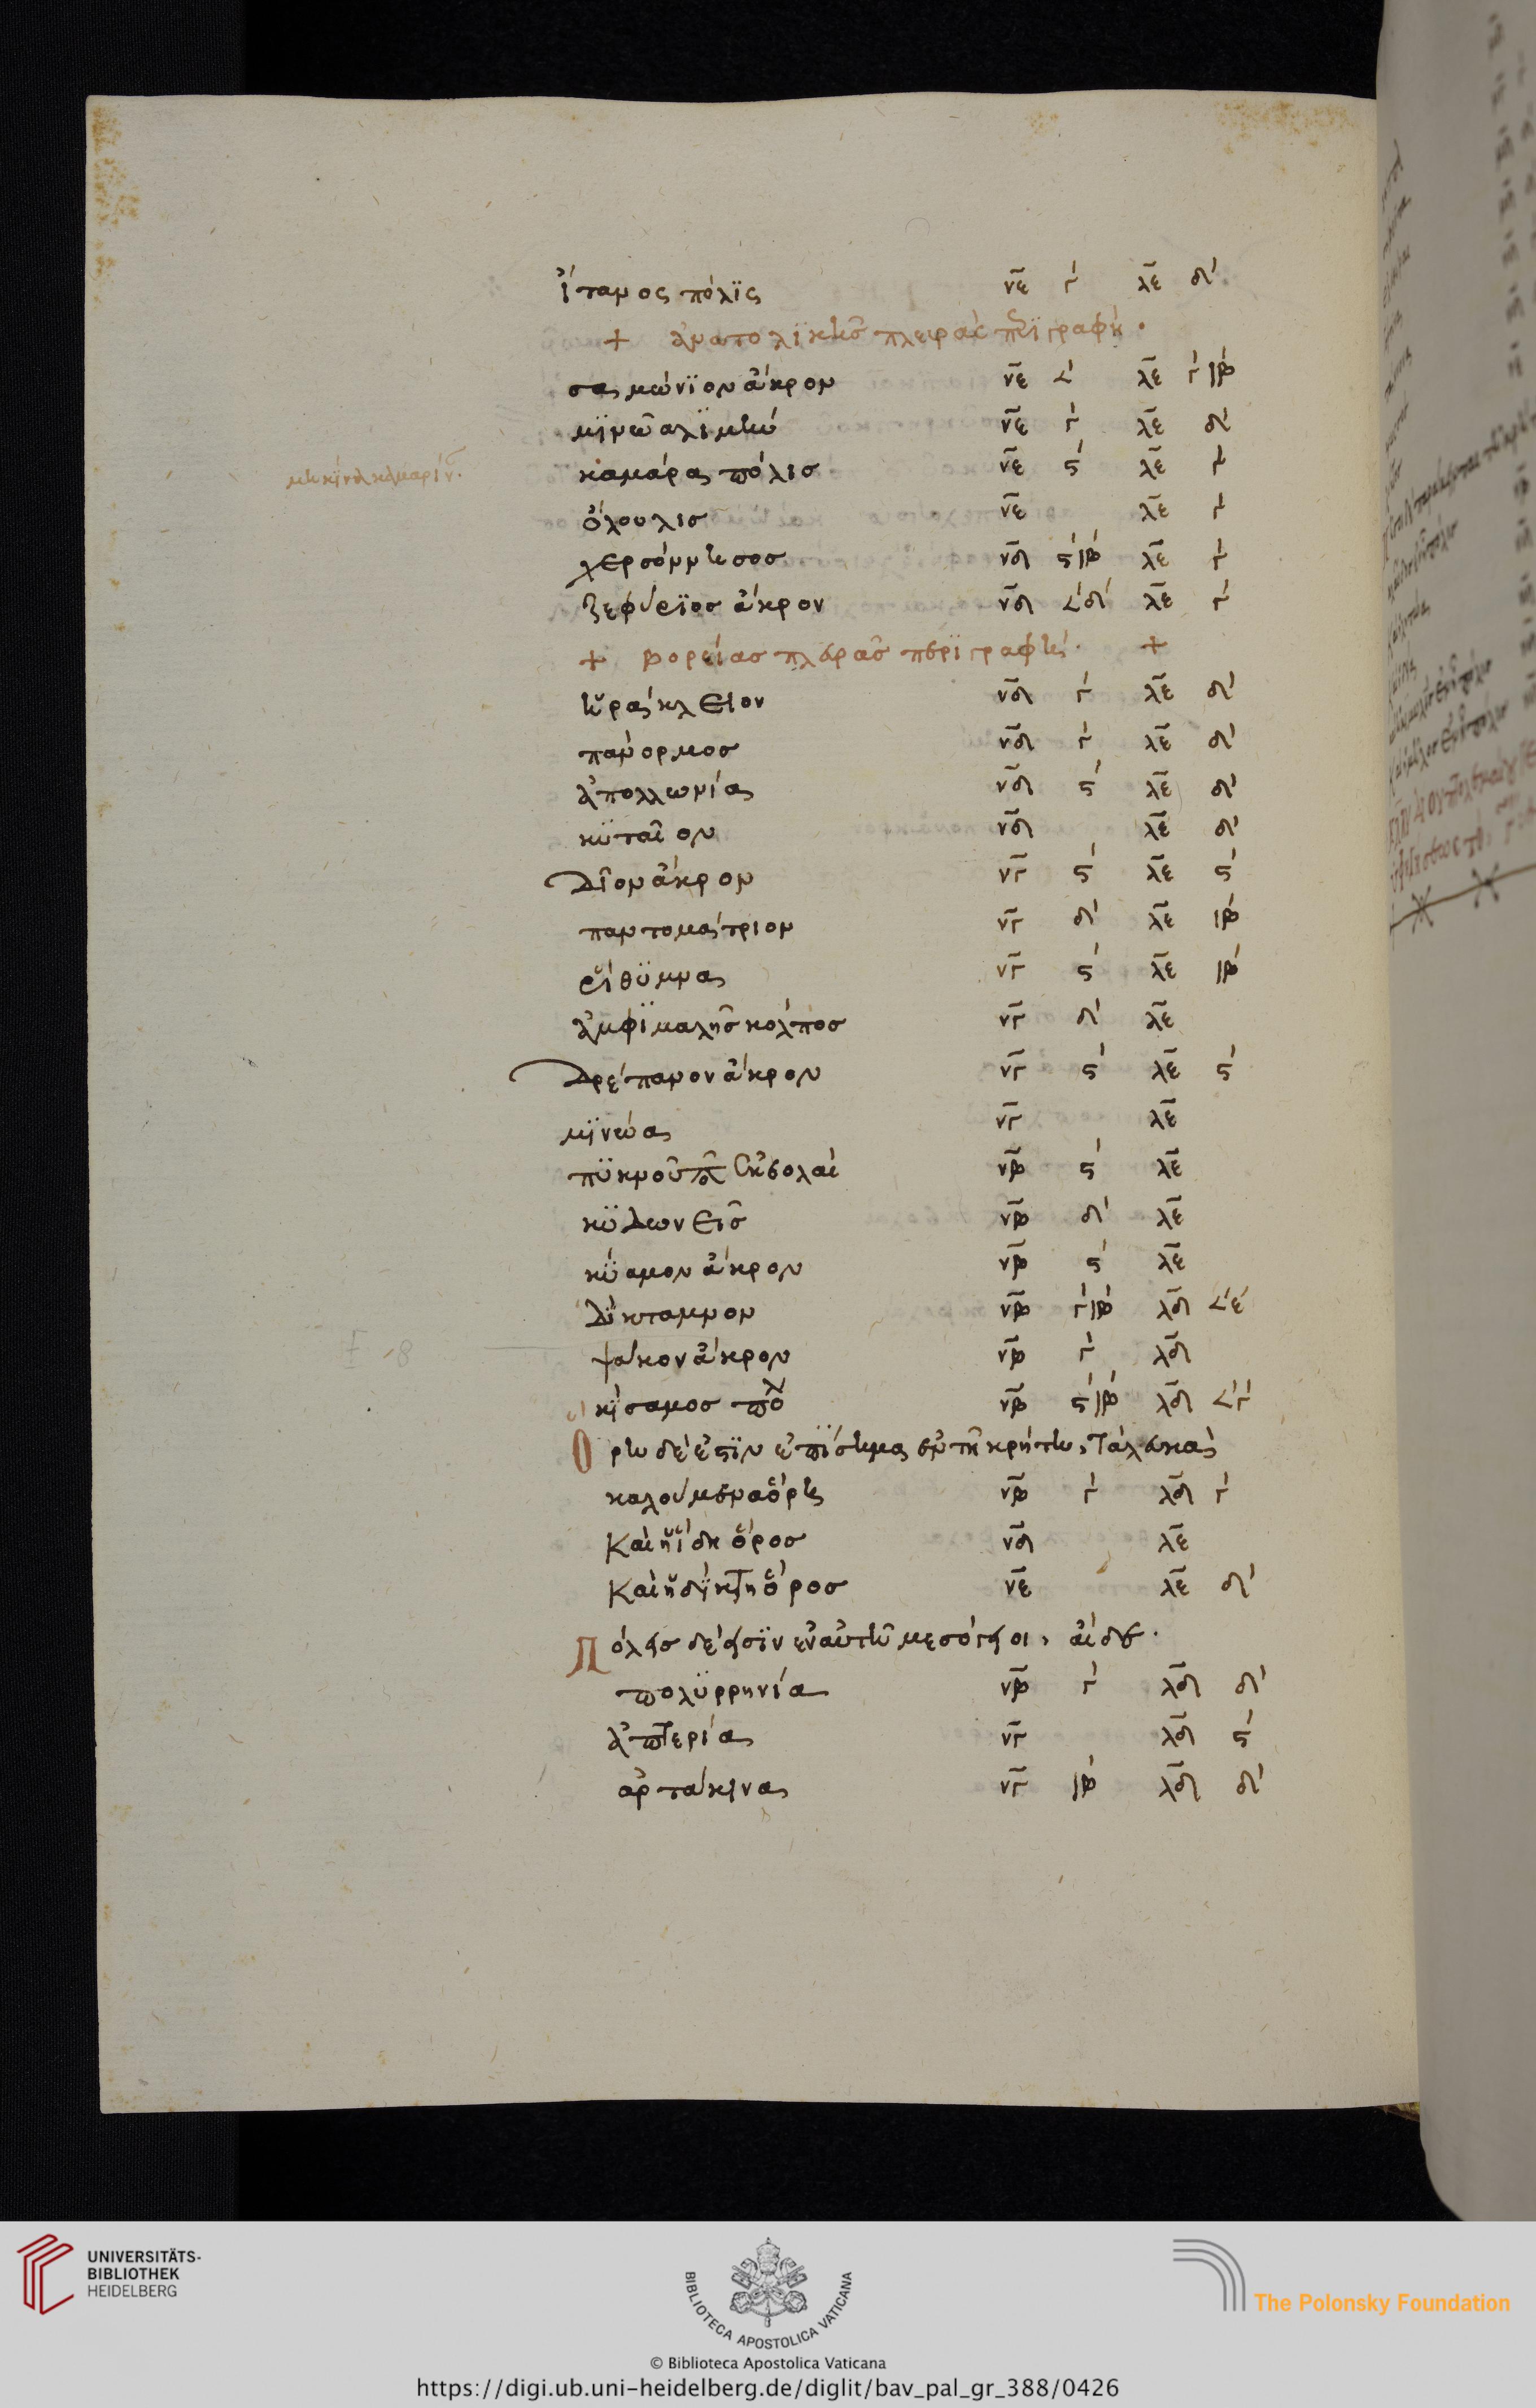 ἴταμος πόλϊς νε γ λε δ
+ ἀνατολϊκῆς πλευρᾶς περϊγραφή.
σαμώνϊον ἄκρον νε 𐅵 λε γιβ
μϊνῶα λϊμήν νε γ λε δ
καμάρα πόλισ νε ϛ λε γ
μὴ κϊναὶ καμαρίν.
ὄλουλισ νε λε γ
χερσόννησοσ νδ ϛιβ λε γ
ζεφύρϊοσ ἄκρον νδ 𐅵δ λε γ
+ βορείασ πλευρᾶσ περϊγραφή. +
ἡράκλειον νδ γ λε δ
πάνορμοσ νδ γ λε δ
ἀπολλωνία νδ ϛ λε δ
κϋταῖον νδ λε δ
Δῖον ἄκρον νγ ϛ λε ϛ
παντομάτριον νγ δ λε ιβ
ῥίθϋμνα νγ ϛ λε ιβ
ἀμφϊμαλὴσ κόλποσ νγ δ λε
Δρέπανον ἄκρον νγ ϛ λε ϛ
μϊνώα νγ λε
πϋκνοῦ ποτ ἐκβολαί νβ ϛ λε
κϋδωνεῖσ νβ δ λε
κϋάμον ἄκρον νβ ϛ λε
Δΐκταμνον νβ γιβ λδ 𐅵ε
ψάκον ἄκρον νβ γ λδ
κίσαμοσ πολ νβ ϛιβ λδ 𐅵γ
Ορη δέ ἐστϊν ἐπϊσημα ἐν τῇ κρήτη, Τά λευκὰ
καλούμενα ὄρη νβ γ λδ γ
Καὶ ἡ ἴδη ὄροσ νδ λε
Καὶ ἡ δΐκτη ὄροσ νε λε δ
Πόλεισ δέ εἰσϊν ἐν αὐτῆ μεσόγειοι, αἵδε.
πολϋρρηνία νβ γ λδ δ
ἀπτερία νγ λδ ϛ
ἀρτάκινα νγ ιβ λδ δ
UNIVERSITÄTS-
BIBLIOTHEK
HEIDELBERG
BIBLIOTECA APOSTOLICA VATICANA
The Polonsky Foundation
© Biblioteca Apostolica Vaticana
https://digi.ub.uni-heidelberg.de/diglit/bav_pal_gr_388/0426